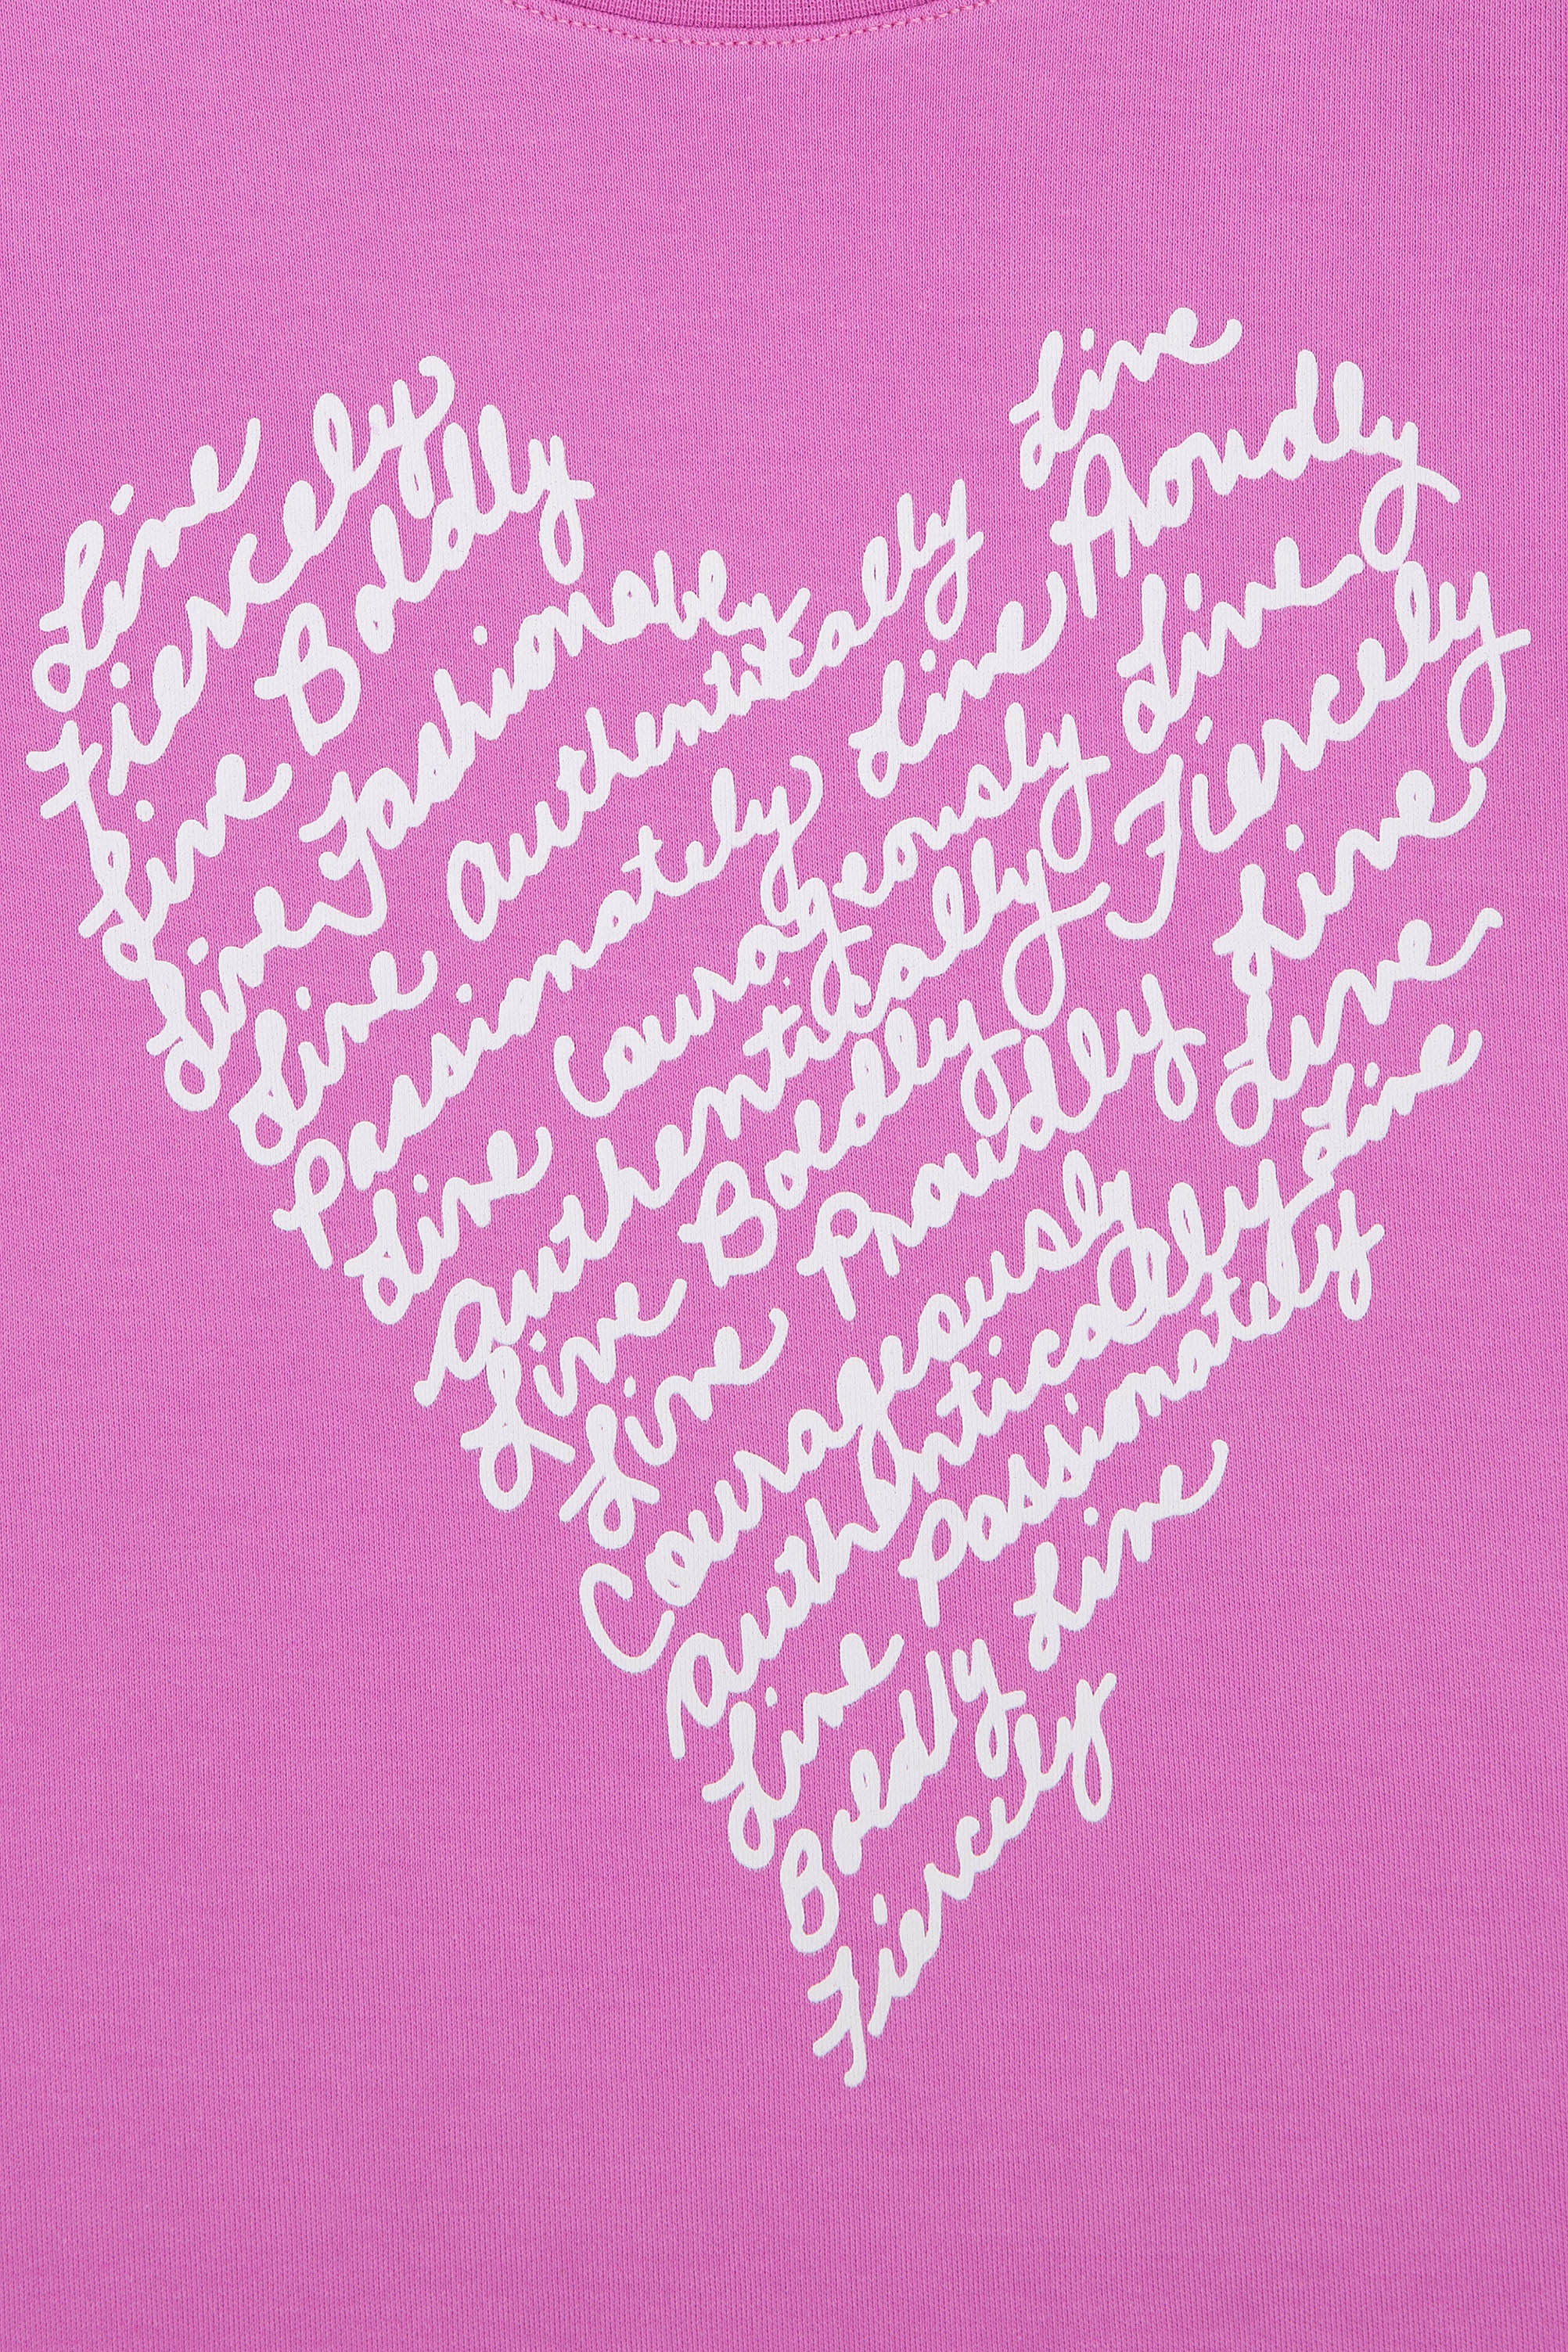 Live
Fiercely
Live Boldly
Live Fashionably
Live Authentically
Live
Proudly
Passionately Live
Live Courageously Live
Authentically Fiercely
Live Boldly Live
Live Proudly Live
Courageously Live
Authentically
Live Passionately
Boldly Live
Fiercely